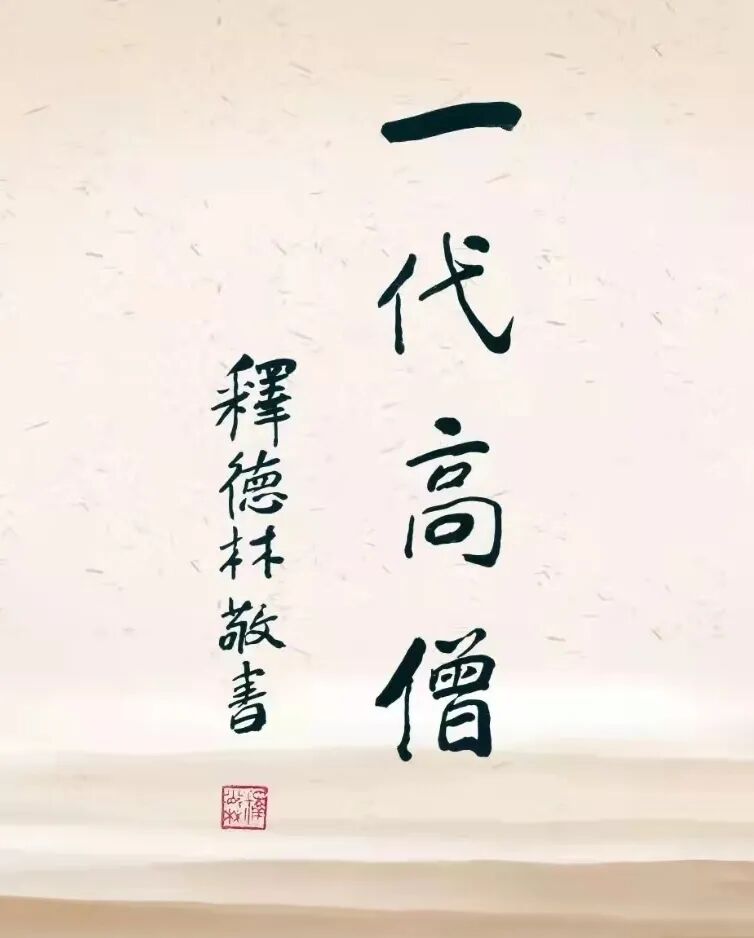 一代高僧
釋德林敬书